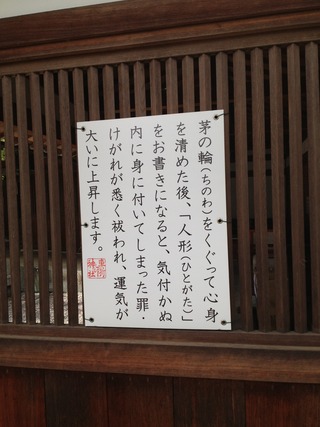 茅の輪（ちのわ）をくぐって心身
を清めた後、「人形（ひとがた）」
をお書きになると、気付かぬ
内に身に付いてしまった罪・
けがれが悉く祓われ、運気が
大いに上昇します。